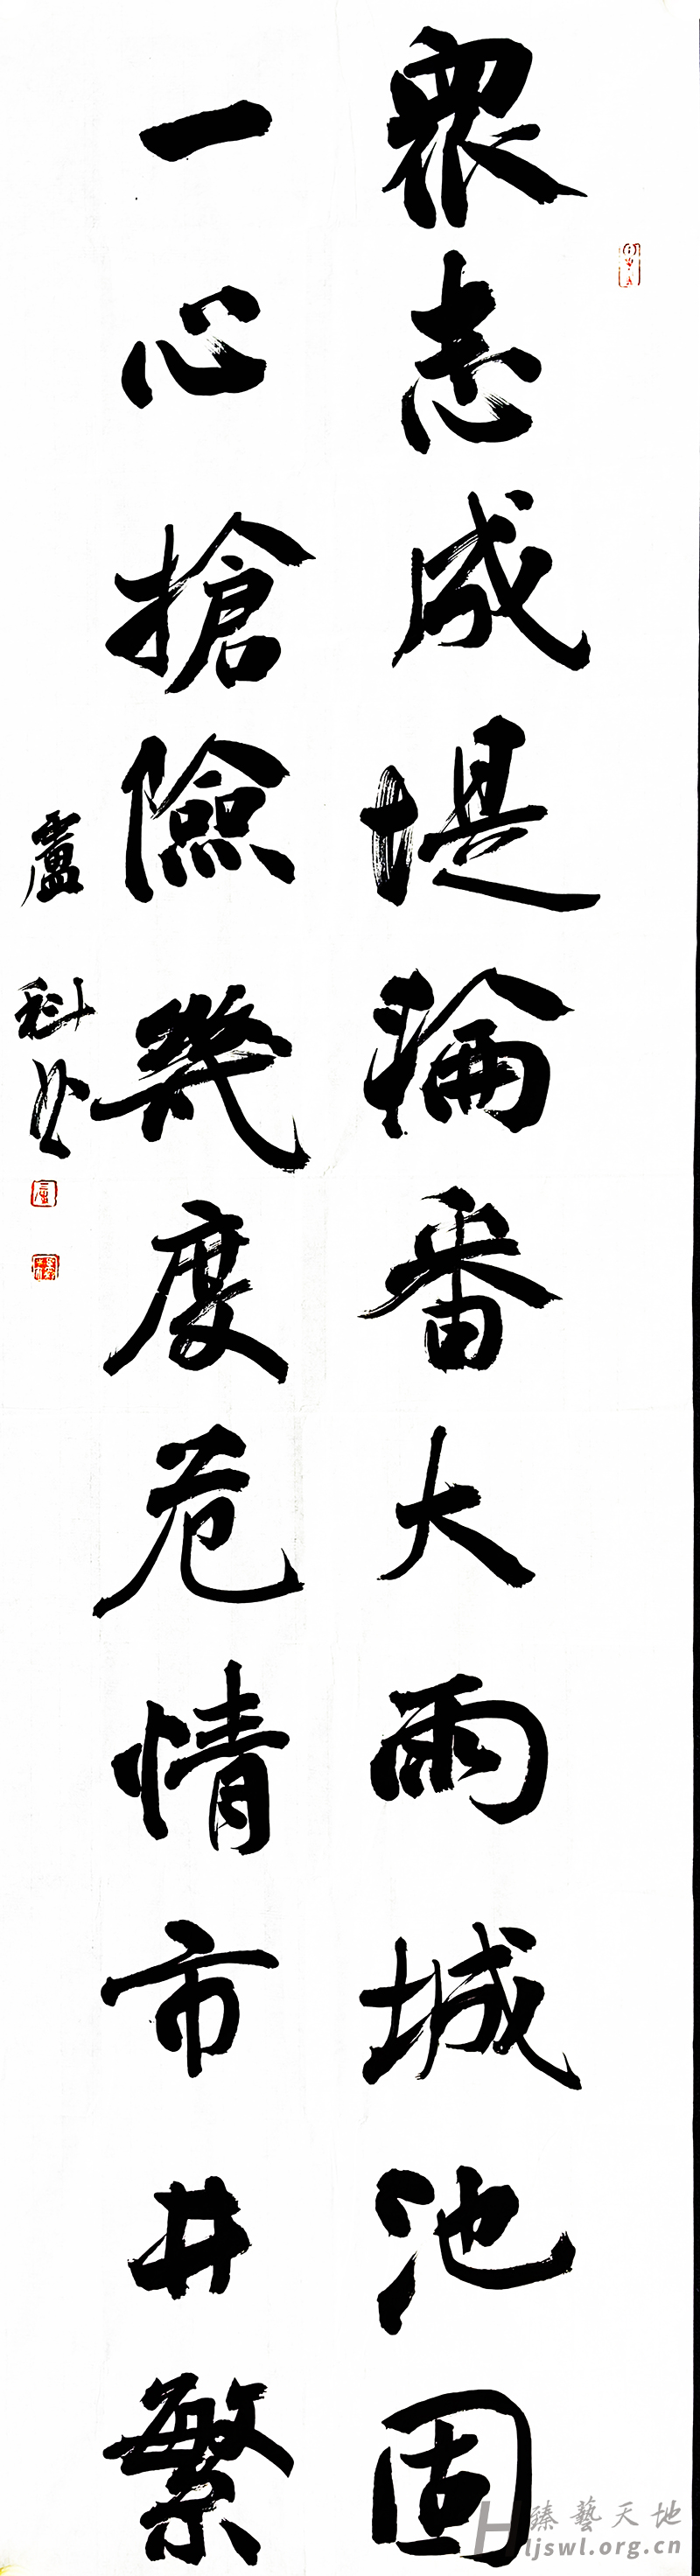 眾志成堤輪番大雨城池固
一心搶險幾度危情市井繁
盧科書
臻藝天地
Hljswl.org.cn